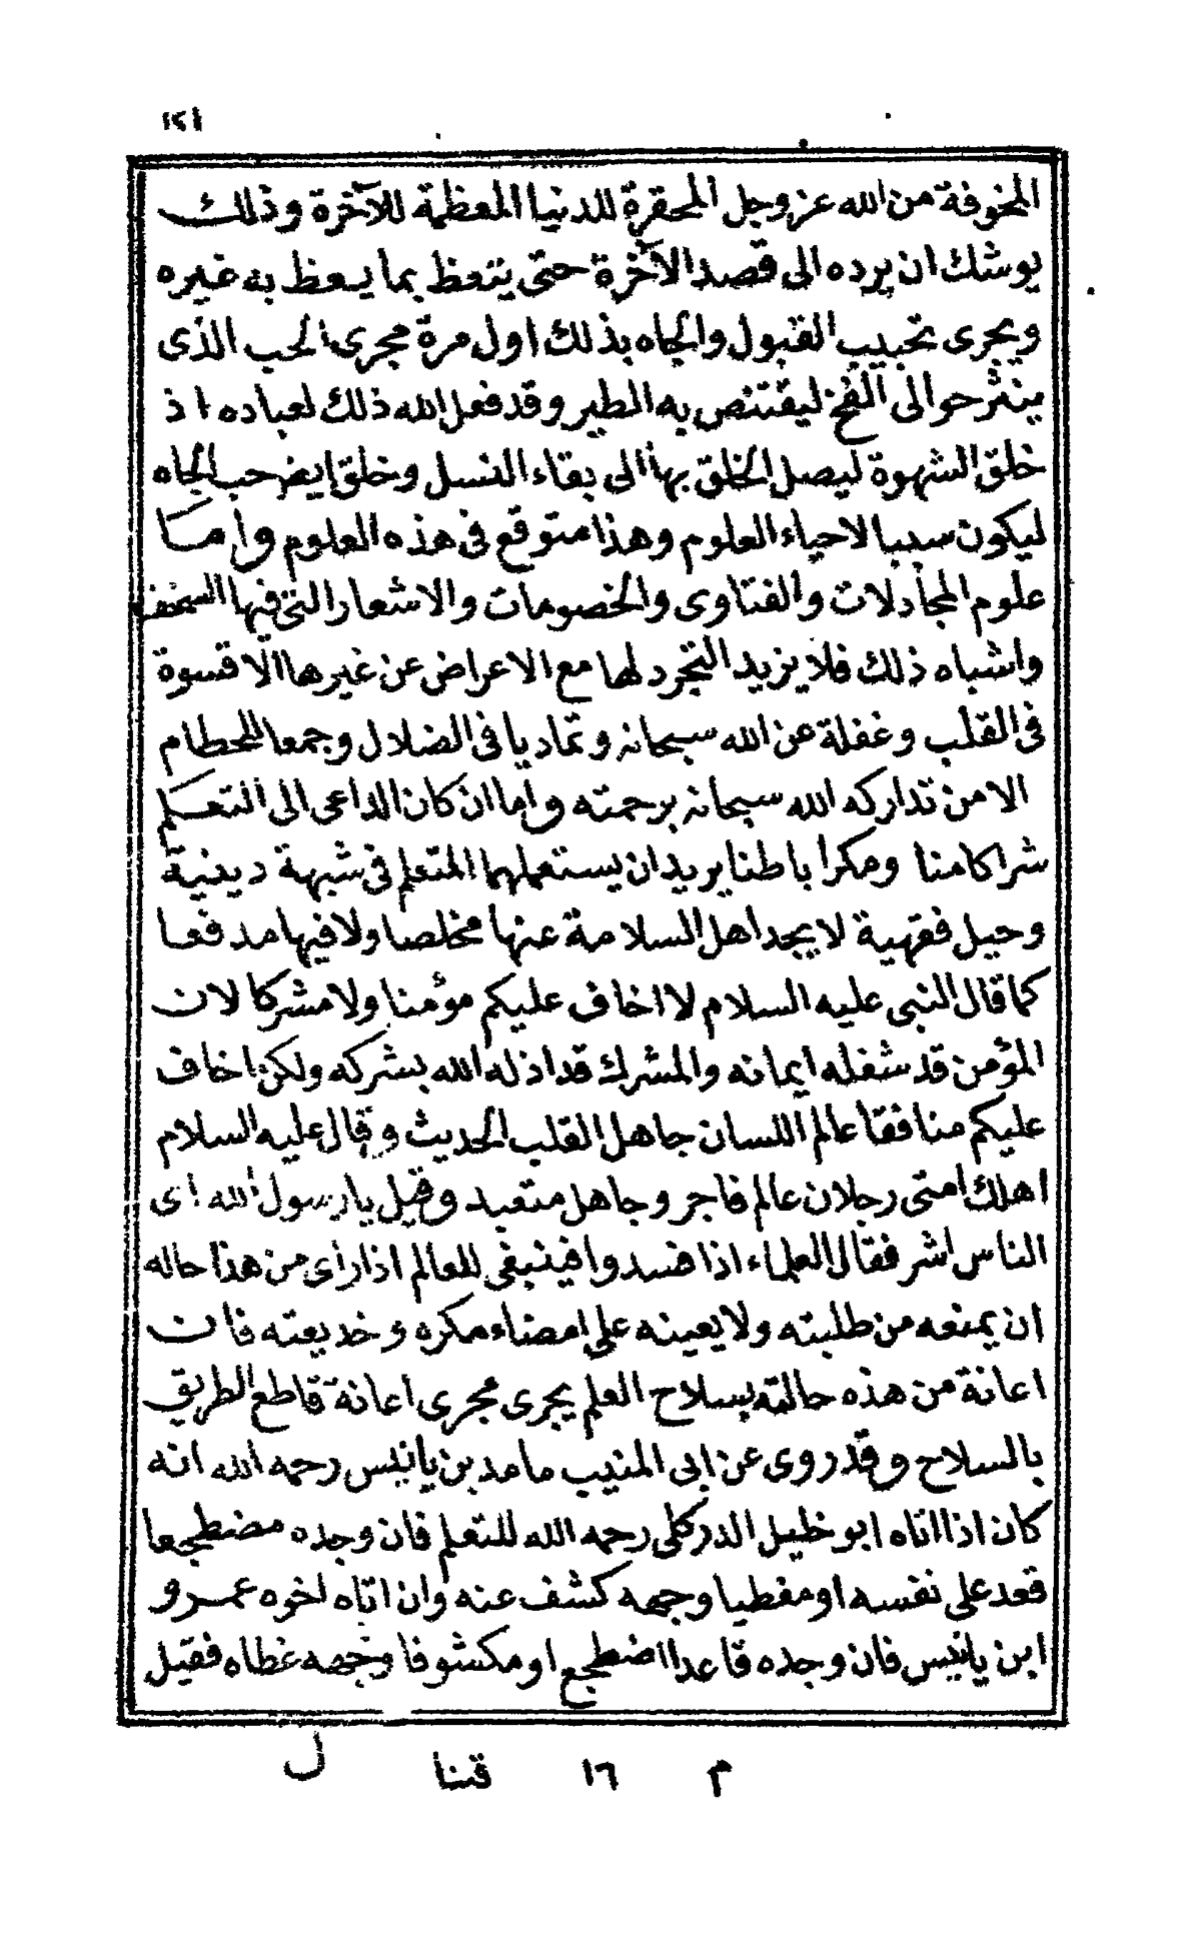 ١٢١
المخوفة من الله عز وجل المحقرة للدنيا المعظمة للآخرة وذلك
يوشك ان يرده الى قصد الآخرة حتى يتعظ بما يعظ به غيره
ويجرى تحبيب القبول والجاه بذلك اول مرة مجرى الحب الذى
ينثر حوالى الفخ ليقتنص به الطير وقد فعل الله ذلك لعباده اذ
خلق الشهوة ليصل الخلق بها الى بقاء النسل وخلق ايضا حب الجاه
ليكون سببا لاحياء العلوم وهذا متوقع فى هذه العلوم واما
علوم المجادلات والفتاوى والخصومات والاشعار التى فيها السخف
واشباه ذلك فلا يزيد التجرد لها مع الاعراض عن غيرها الا قسوة
فى القلب وغفلة عن الله سبحانه وتماديا فى الضلال وجمعا للحطام
الا من تداركه الله سبحانه برحمته واما ان كان الداعى الى التعلم
شرا كامنا ومكرا باطنا يريد ان يستعملهما المتعلم فى شبهة دينية
وحيل فقهية لا يجد اهل السلامة عنها مخلصا ولا فيها مدفعا
كما قال النبى عليه السلام لا اخاف عليكم مؤمنا ولا مشركا لان
المؤمن قد شغله ايمانه والمشرك قد اذله الله بشركه ولكن اخاف
عليكم منافقا عالم اللسان جاهل القلب الحديث وقال عليه السلام
اهلك امتى رجلان عالم فاجر وجاهل متعبد وقيل يا رسول الله اى
الناس اشر فقال العلماء اذا فسدوا فينبغى للعالم اذا رأى من هذا حاله
ان يمنعه من طلبته ولا يعينه على امضاء مكره وخديعته فان
اعانة من هذه حالته بسلاح العلم يجرى مجرى اعانة قاطع الطريق
بالسلاح وقد روى عن ابى المنيب مامد بن يانيس رحمه الله انه
كان اذا اتاه ابو خليل الدركلى رحمه الله للتعلم فان وجده مضطجعا
قعد على نفسه او مغطيا وجهه كشف عنه وان اتاه اخوه عمرو
ابن يانيس فان وجده قاعدا اضطجع او مكشوفا وجهه غطاه فقيل
م ١٦ قنا ل